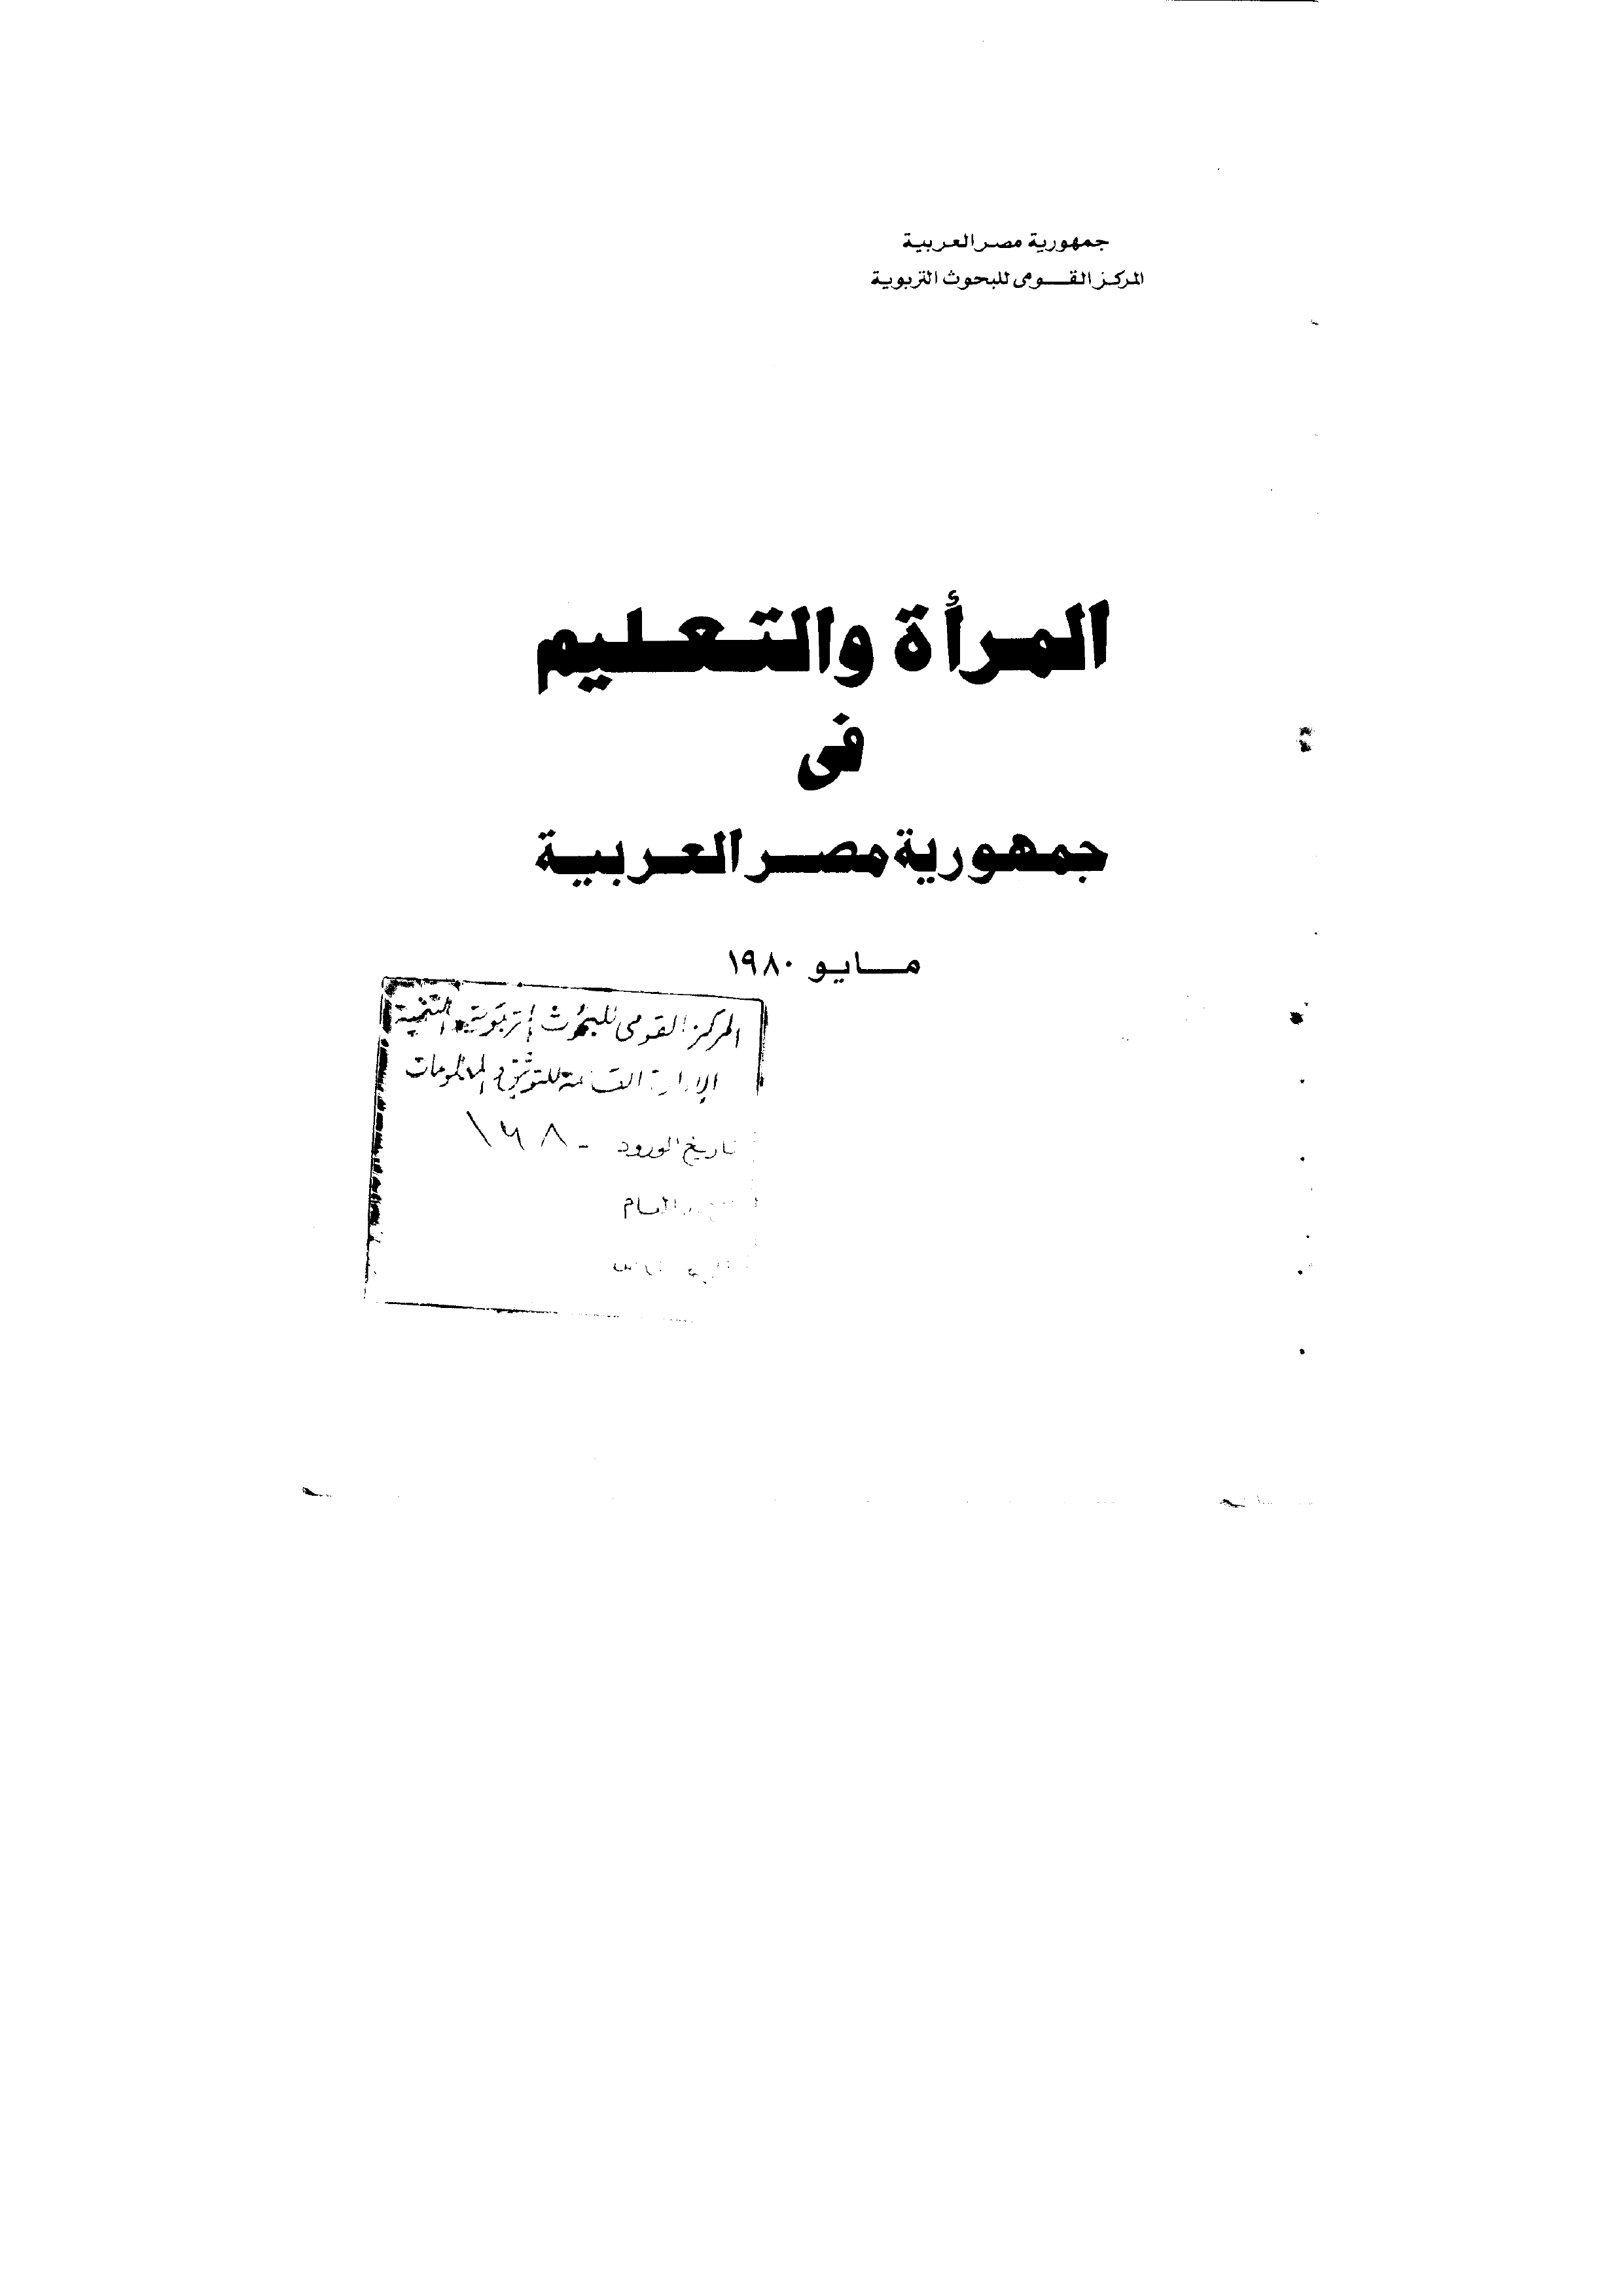 جمهورية مصر العربية
المركز القومى للبحوث التربوية
المرأة والتعليم
فى
جمهورية مصر العربية
مايو ١٩٨٠
المركز القومى للبحوث التربوية والتنمية
الإدارة العامة للتوثيق والمعلومات
تاريخ الورود